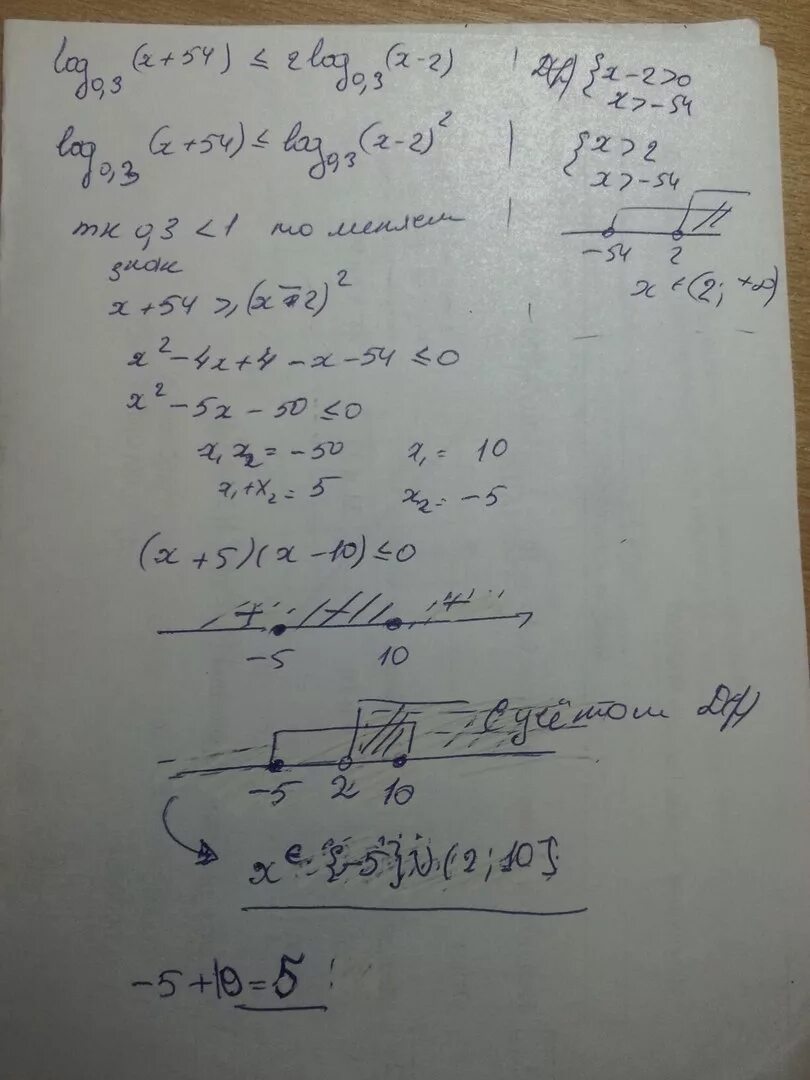 log₀,₃(x+54) ≤ 2log₀,₃(x-2)
log₀,₃(x+54) ≤ log₀,₃(x-2)²
тк 0,3 < 1 то меняем
знак
x+54 ⩾ (x-2)²
x²-4x+4-x-54 ≤ 0
x²-5x-50 ≤ 0
x₁x₂ = -50 x₁ = 10
x₁+x₂ = 5 x₂ = -5
(x+5)(x-10) ≤ 0
-5 10
С учётом D(y)
-5 2 10
x ∈ {-5}∪(2;10]
-5+10=5
D(y) {x-2>0
x>-54
{x>2
x>-54
-54 2
x ∈ (2; +∞)